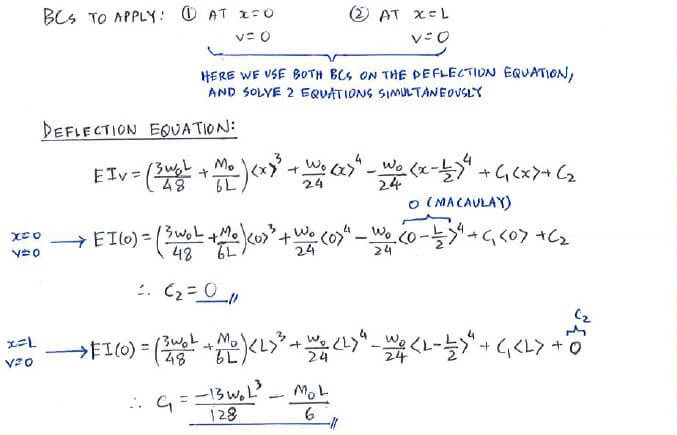 BCs TO APPLY: ① AT x=0 ② AT x=L
v=0 v=0
HERE WE USE BOTH BCs ON THE DEFLECTION EQUATION,
AND SOLVE 2 EQUATIONS SIMULTANEOUSLY
DEFLECTION EQUATION:
EIv = (3w₀L/48 + M₀/6L)<x>³ + w₀/24 <x>⁴ - w₀/24 <x-L/2>⁴ + C₁<x> + C₂
0 (MACAULAY)
x=0 v=0 → EI(0) = (3w₀L/48 + M₀/6L)<0>³ + w₀/24 <0>⁴ - w₀/24 <0-L/2>⁴ + C₁<0> + C₂
∴ C₂ = 0
C₂
x=L v=0 → EI(0) = (3w₀L/48 + M₀/6L)<L>³ + w₀/24 <L>⁴ - w₀/24 <L-L/2>⁴ + C₁<L> + 0
∴ C₁ = -13w₀L³/128 - M₀L/6